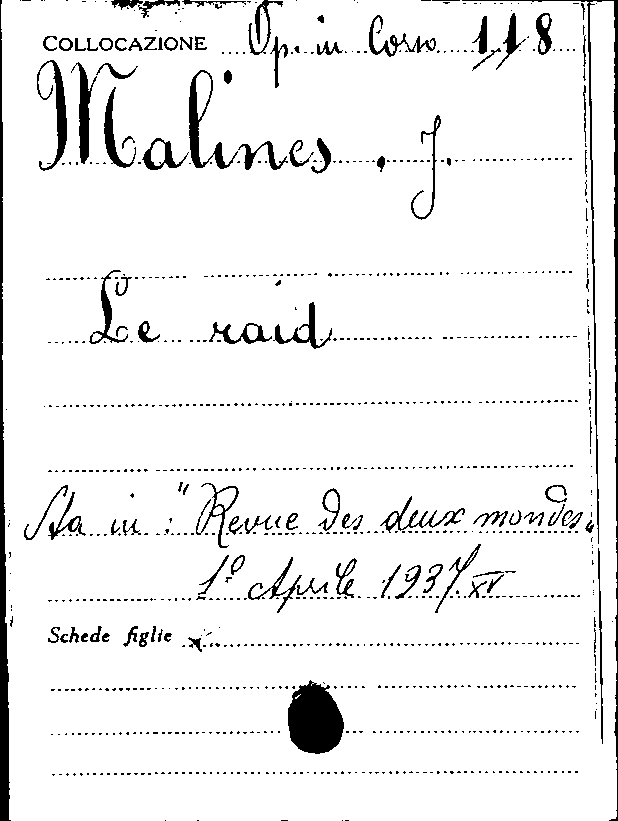 COLLOCAZIONE Op. in Corso 118
Malines, J.
Le raid
Sta in: "Revue des deux mondes"
1º Aprile 1937.XV
Schede figlie